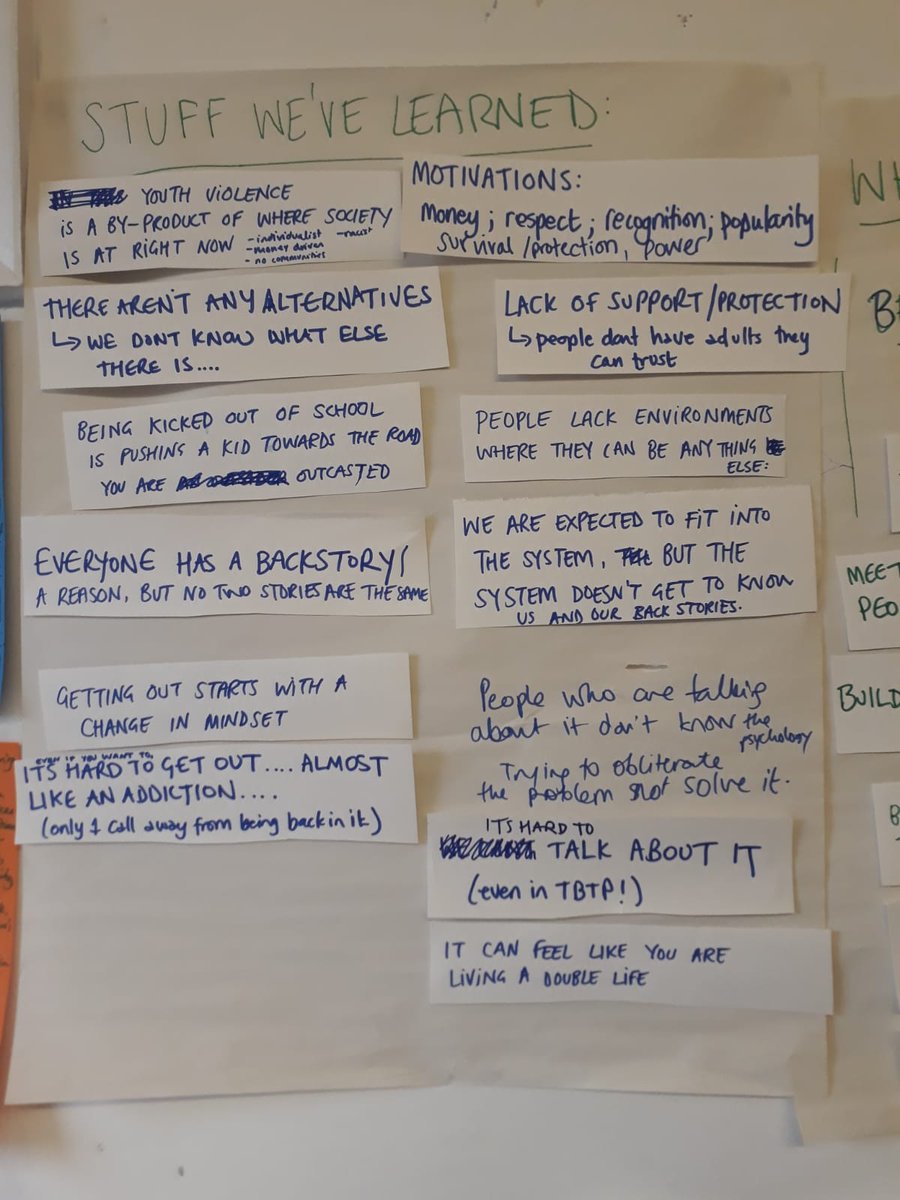 STUFF WE'VE LEARNED:
YOUTH VIOLENCE
IS A BY-PRODUCT OF WHERE SOCIETY
IS AT RIGHT NOW
- individualist
- racist
- money driven
- no communities
THERE AREN'T ANY ALTERNATIVES
↳ WE DONT KNOW WHAT ELSE
THERE IS....
BEING KICKED OUT OF SCHOOL
IS PUSHING A KID TOWARDS THE ROAD
YOU ARE OUTCASTED
EVERYONE HAS A BACKSTORY/
A REASON, BUT NO TWO STORIES ARE THE SAME
GETTING OUT STARTS WITH A
CHANGE IN MINDSET
EVEN IF YOU WANT TO,
ITS HARD TO GET OUT.... ALMOST
LIKE AN ADDICTION....
(only 1 call away from being back in it)
MOTIVATIONS:
Money; respect; recognition; popularity
survival/protection, power
LACK OF SUPPORT/PROTECTION
↳ people dont have adults they
can trust
PEOPLE LACK ENVIRONMENTS
WHERE THEY CAN BE ANYTHING
ELSE:
WE ARE EXPECTED TO FIT INTO
THE SYSTEM, BUT THE
SYSTEM DOESN'T GET TO KNOW
US AND OUR BACK STORIES.
People who are talking
about it don't know the
psychology
Trying to obliterate
the problem not solve it.
ITS HARD TO
TALK ABOUT IT
(even in TBTP!)
IT CAN FEEL LIKE YOU ARE
LIVING A DOUBLE LIFE
MEET
PEO
BUILD